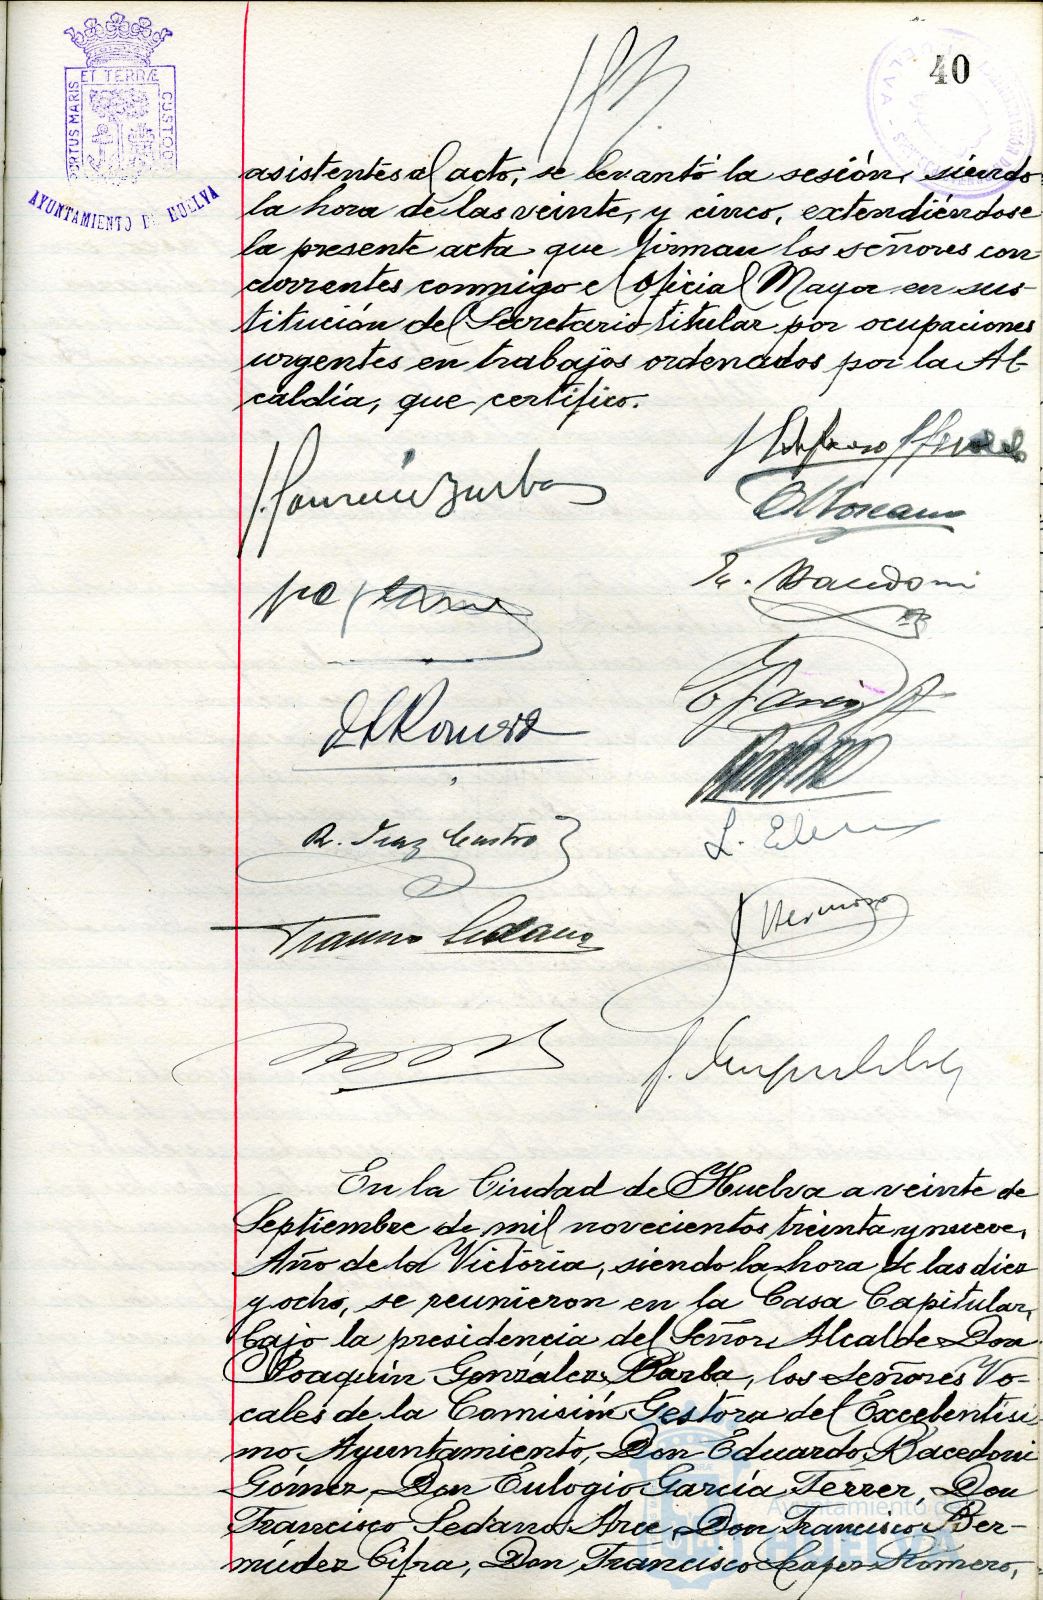 40
ET TERRÆ
PORTUS MARIS
CUSTOD
AYUNTAMIENTO DE HUELVA
asistentes al acto, se levantó la sesión, siendo
la hora de las veinte y cinco, extendiéndose
la presente acta que firman los señores con
currentes conmigo el Oficial Mayor en sus
titución del Secretario titular por ocupaciones
urgentes en trabajos ordenados por la Al-
caldía, que certifico.
R. Díaz Castro
En la Ciudad de Huelva a veinte de
Septiembre de mil novecientos treinta y nueve,
Año de la Victoria, siendo la hora de las diez
y ocho, se reunieron en la Casa Capitular,
bajo la presidencia del Señor Alcalde Don
Joaquín González Barba, los señores Vo-
cales de la Comisión Gestora del Excelentísi
mo Ayuntamiento, Don Eduardo Macedoni
Gómez, Don Eulogio García Ferrer, Don
Francisco Sedano Arce, Don Francisco Ber-
múdez Cifra, Don Francisco Romero,
Ayuntamiento de
HUELVA